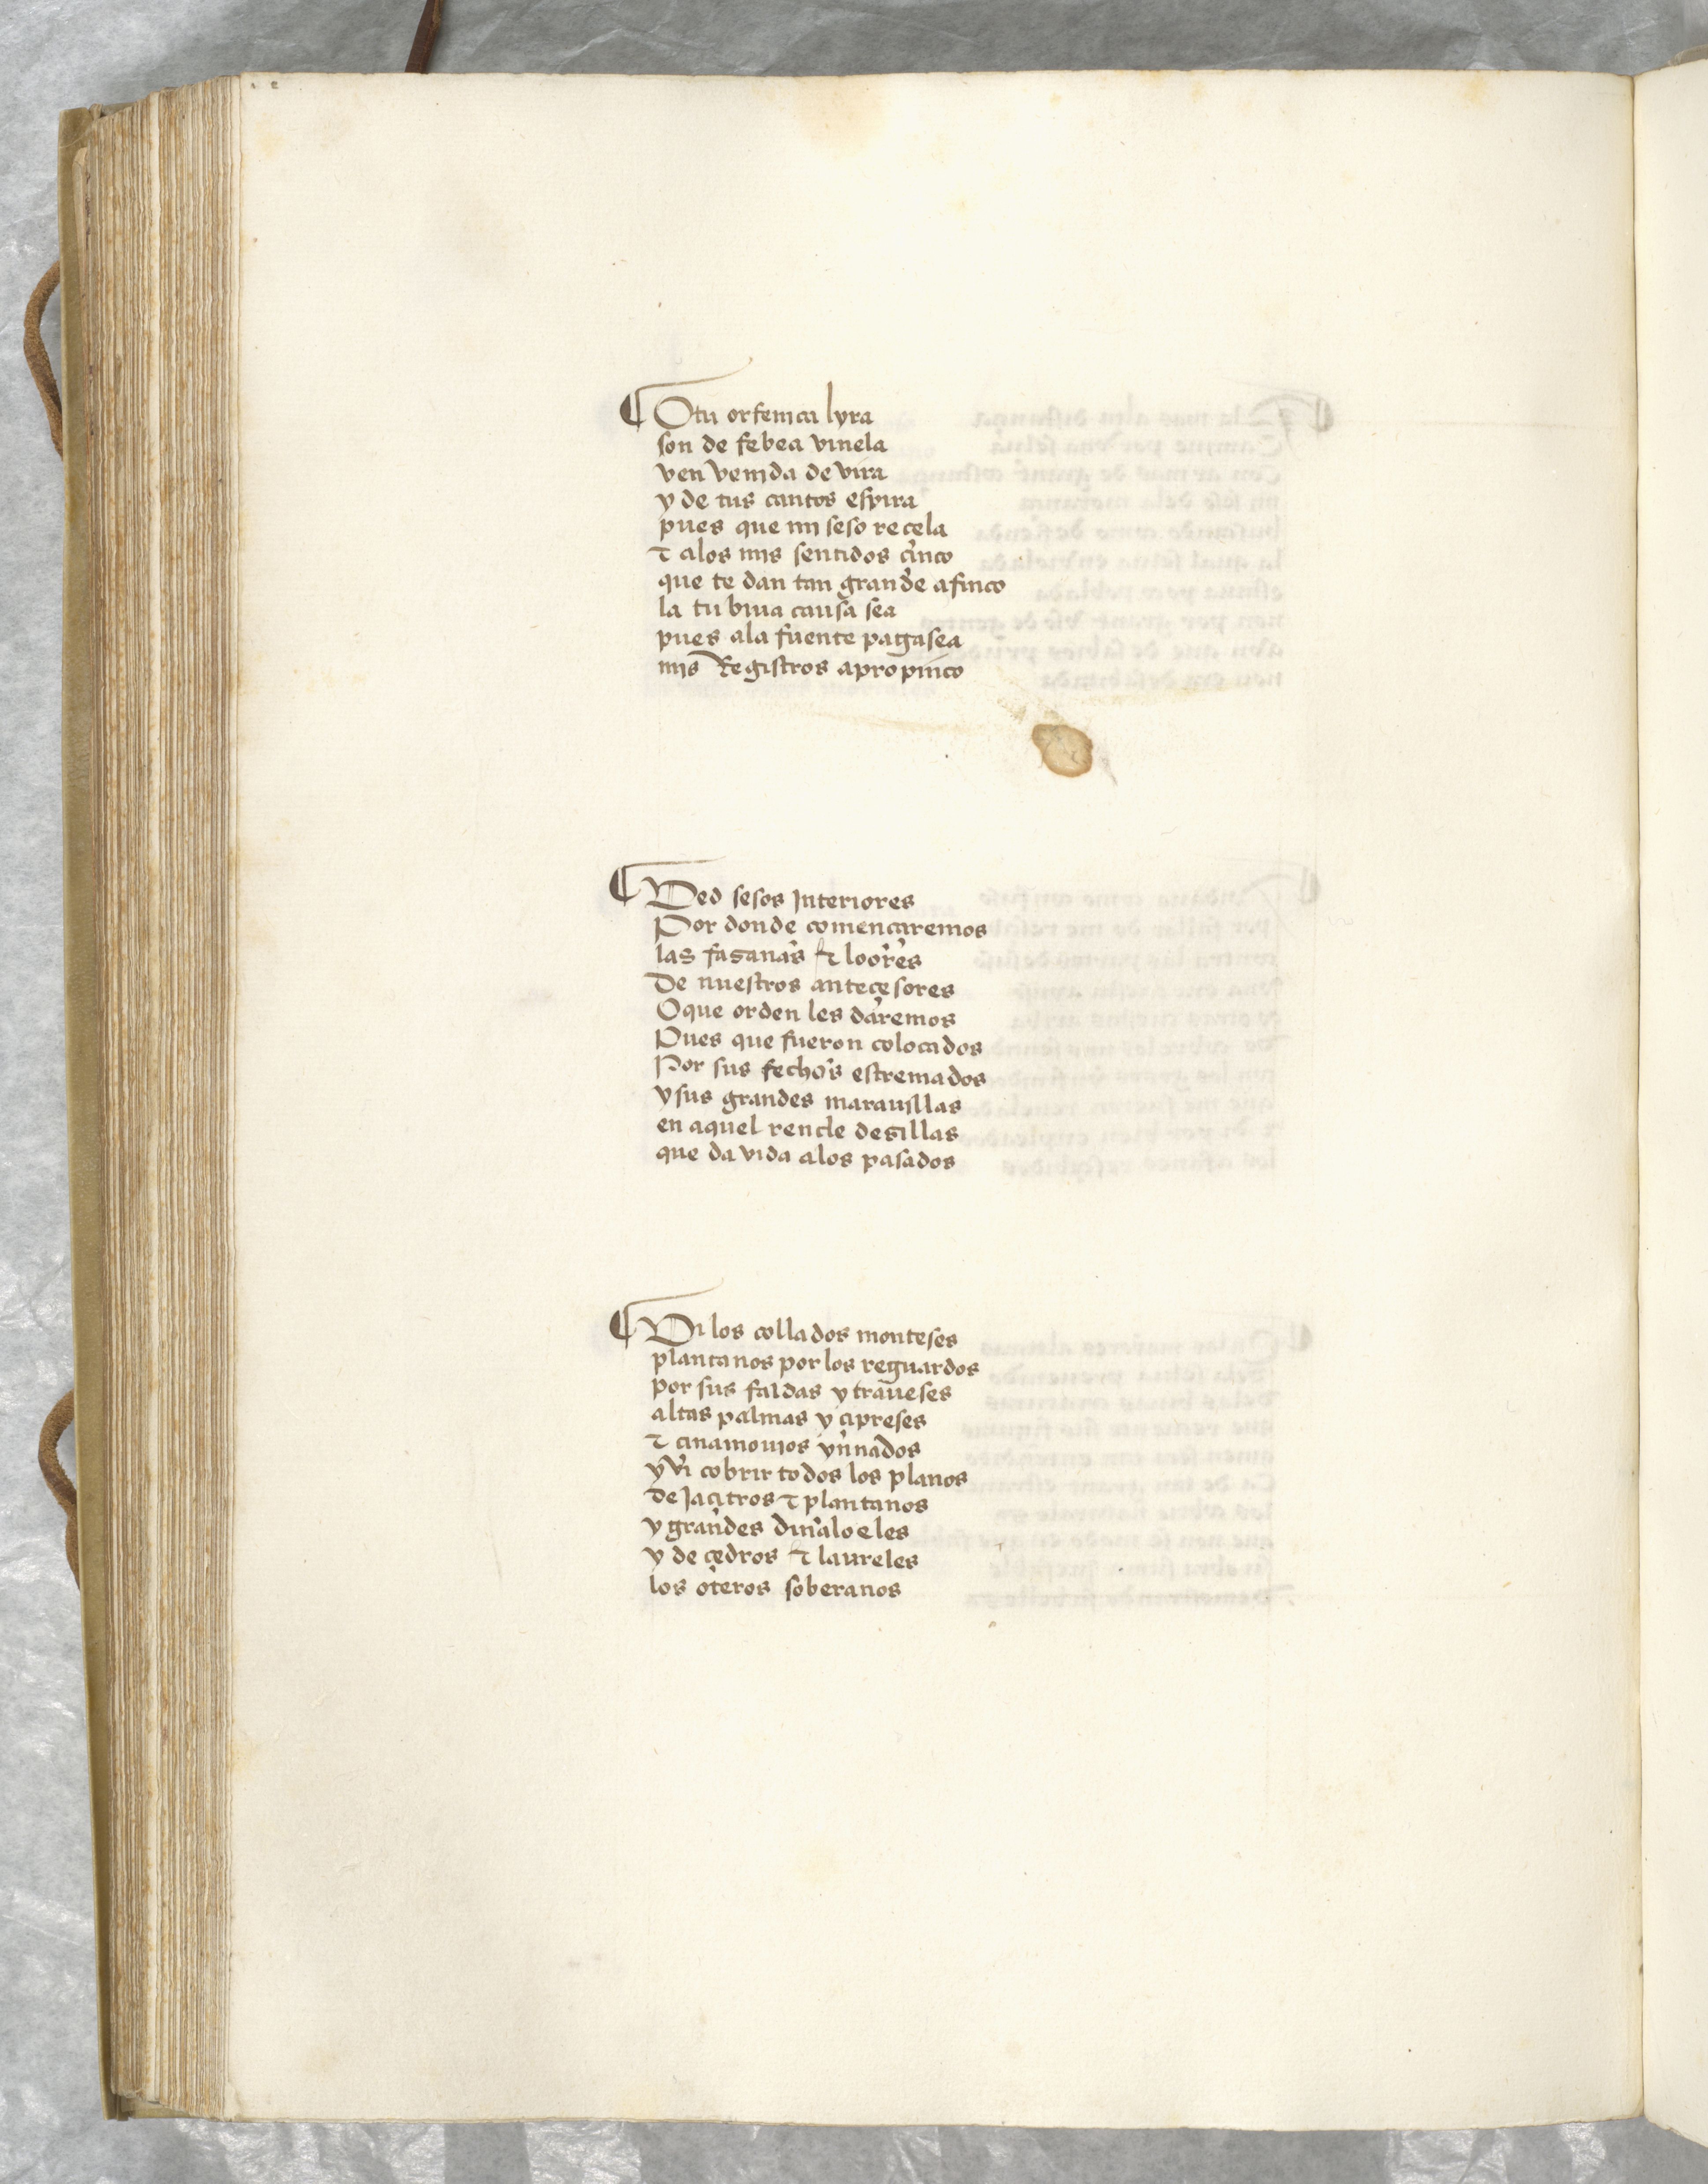 ¶ O tu orfenica lyra
son de febea vinela
ven venida de vira
y de tus cantos espira
pues que mi seso recela
⁊ alos mis sentidos cinco
que te dan tan grande afinco
la tu biua causa sea
pues ala fuente pagasea
mis Registros apropinco
¶ Ved sesos interiores
Por donde comencaremos
las fasanas ⁊ loores
De nuestros anteçesores
O que orden les daremos
Pues que fueron colocados
Por sus fechos estremados
y sus grandes marauillas
en aquel rencle de sillas
que da vida alos pasados
¶ Vi los collados monteses
plantanos por los reguardos
por sus faldas y traueses
altas palmas y cipreses
⁊ cinamomos ynnados
y vi cobrir todos los planos
de Jacitros ⁊ plantanos
y grandes linaloeles
y de çedros ⁊ laureles
los oteros soberanos